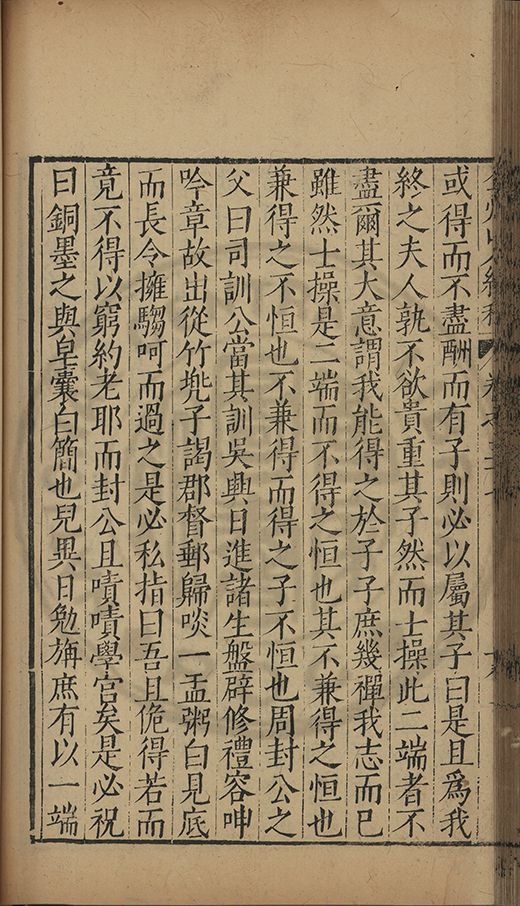 或得而不盡酬而有子則必以屬其子曰是且爲我
終之夫人孰不欲貴重其子然而士操此二端者不
盡爾其大意謂我能得之於子子庶幾禪我志而已
雖然士操是二端而不得之恒也其不兼得之恒也
兼得之不恒也不兼得而得之子不恒也周封公之
父曰司訓公當其訓吳興日進諸生盤辟修禮容呻
吟章故出從竹兠子謁郡督郵歸啖一盂粥白見底
而長令擁騶呵而過之是必私指曰吾且俛得若而
竟不得以窮約老耶而封公且嘖嘖學宫矣是必祝
曰銅墨之與皁囊白簡也兒異日勉旃庶有以一端